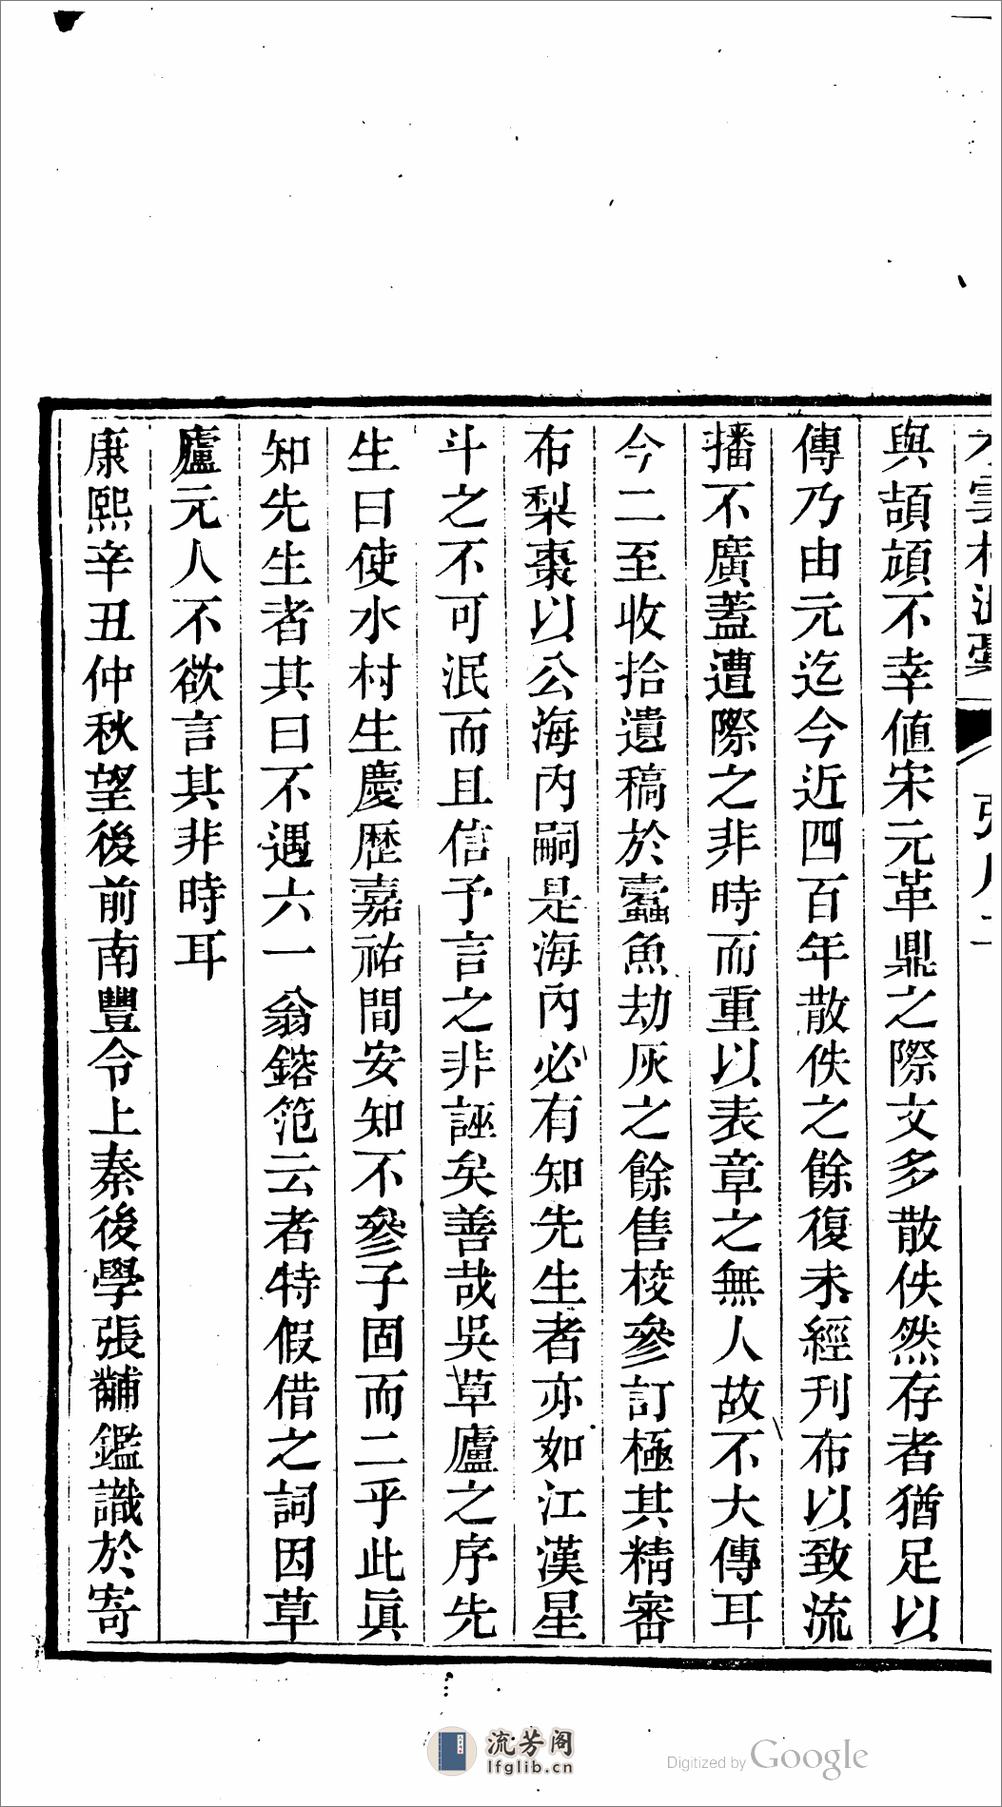 水雲村泯藁
張序二
與頡頏不幸値宋元革鼎之際文多散佚然存者猶足以
傳乃由元迄今近四百年散佚之餘復未經刊布以致流
播不廣蓋遭際之非時而重以表章之無人故不大傳耳
今二至收拾遺稿於蠧魚劫灰之餘售梭參訂極其精審
布梨棗以公海內嗣是海內必有知先生者亦如江漢星
斗之不可泯而且信予言之非誣矣善哉吳草廬之序先
生曰使水村生慶歷嘉祐間安知不參子固而二乎此眞
知先生者其曰不遇六一翁鎔范云者特假借之詞因草
廬元人不欲言其非時耳
康熙辛丑仲秋望後前南豐令上秦後學張黼鑑識於寄
流芳阁
lfglib.cn
Digitized by Google